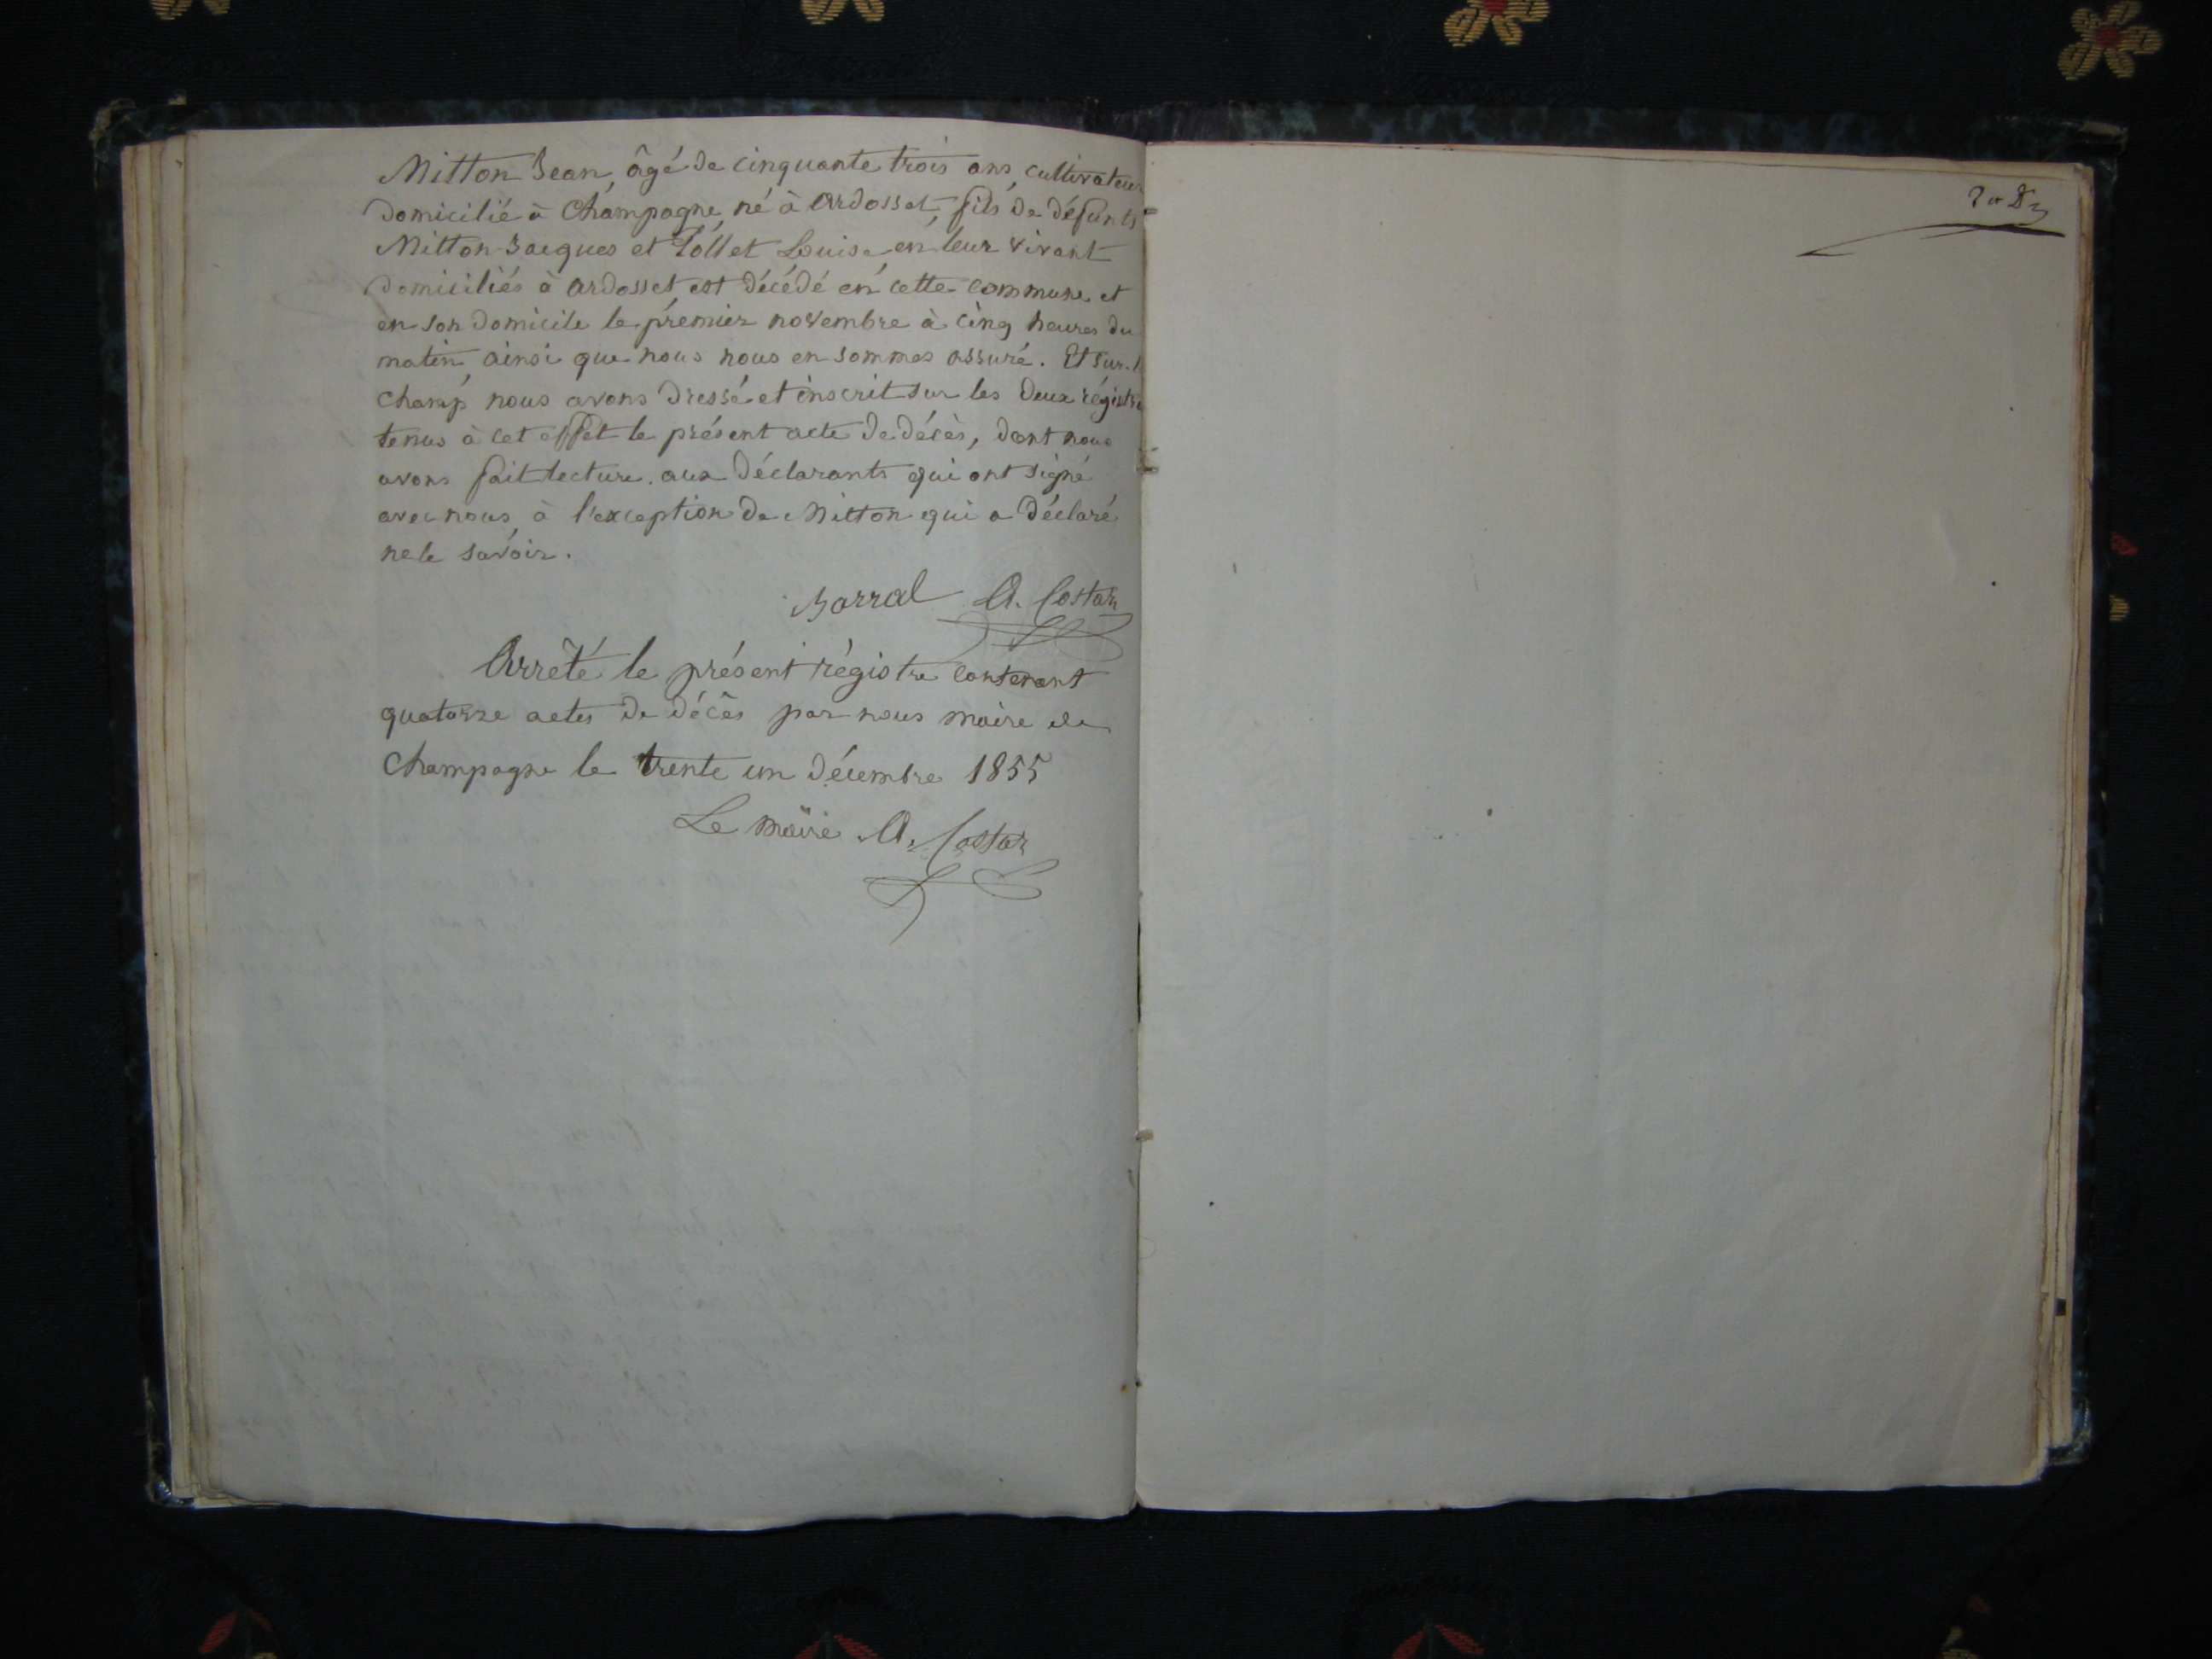 Mitton Jean, âgé de cinquante trois ans, cultivateur
domicilié à Champagne, né à Ardosset, fils de défunts
Mitton Jacques et Tollet Louise en leur vivant
domiciliés à Ardosset, est décédé en cette commune et
en son domicile le premier novembre à cinq heures du
matin, ainsi que nous nous en sommes assuré. Et sur-l
champ nous avons dressé et inscrit sur les deux régistre
tenus à cet effet le présent acte de décès, dont nous
avons fait lecture aux déclarants qui ont signé
avec nous, à l'exception de Mitton qui a déclaré
ne le savoir.
Barral A. Costaz
Arrêté le présent régistre contenant
quatorze actes de décès par nous maire de
Champagne le trente un décembre 1855
Le maire A. Costaz